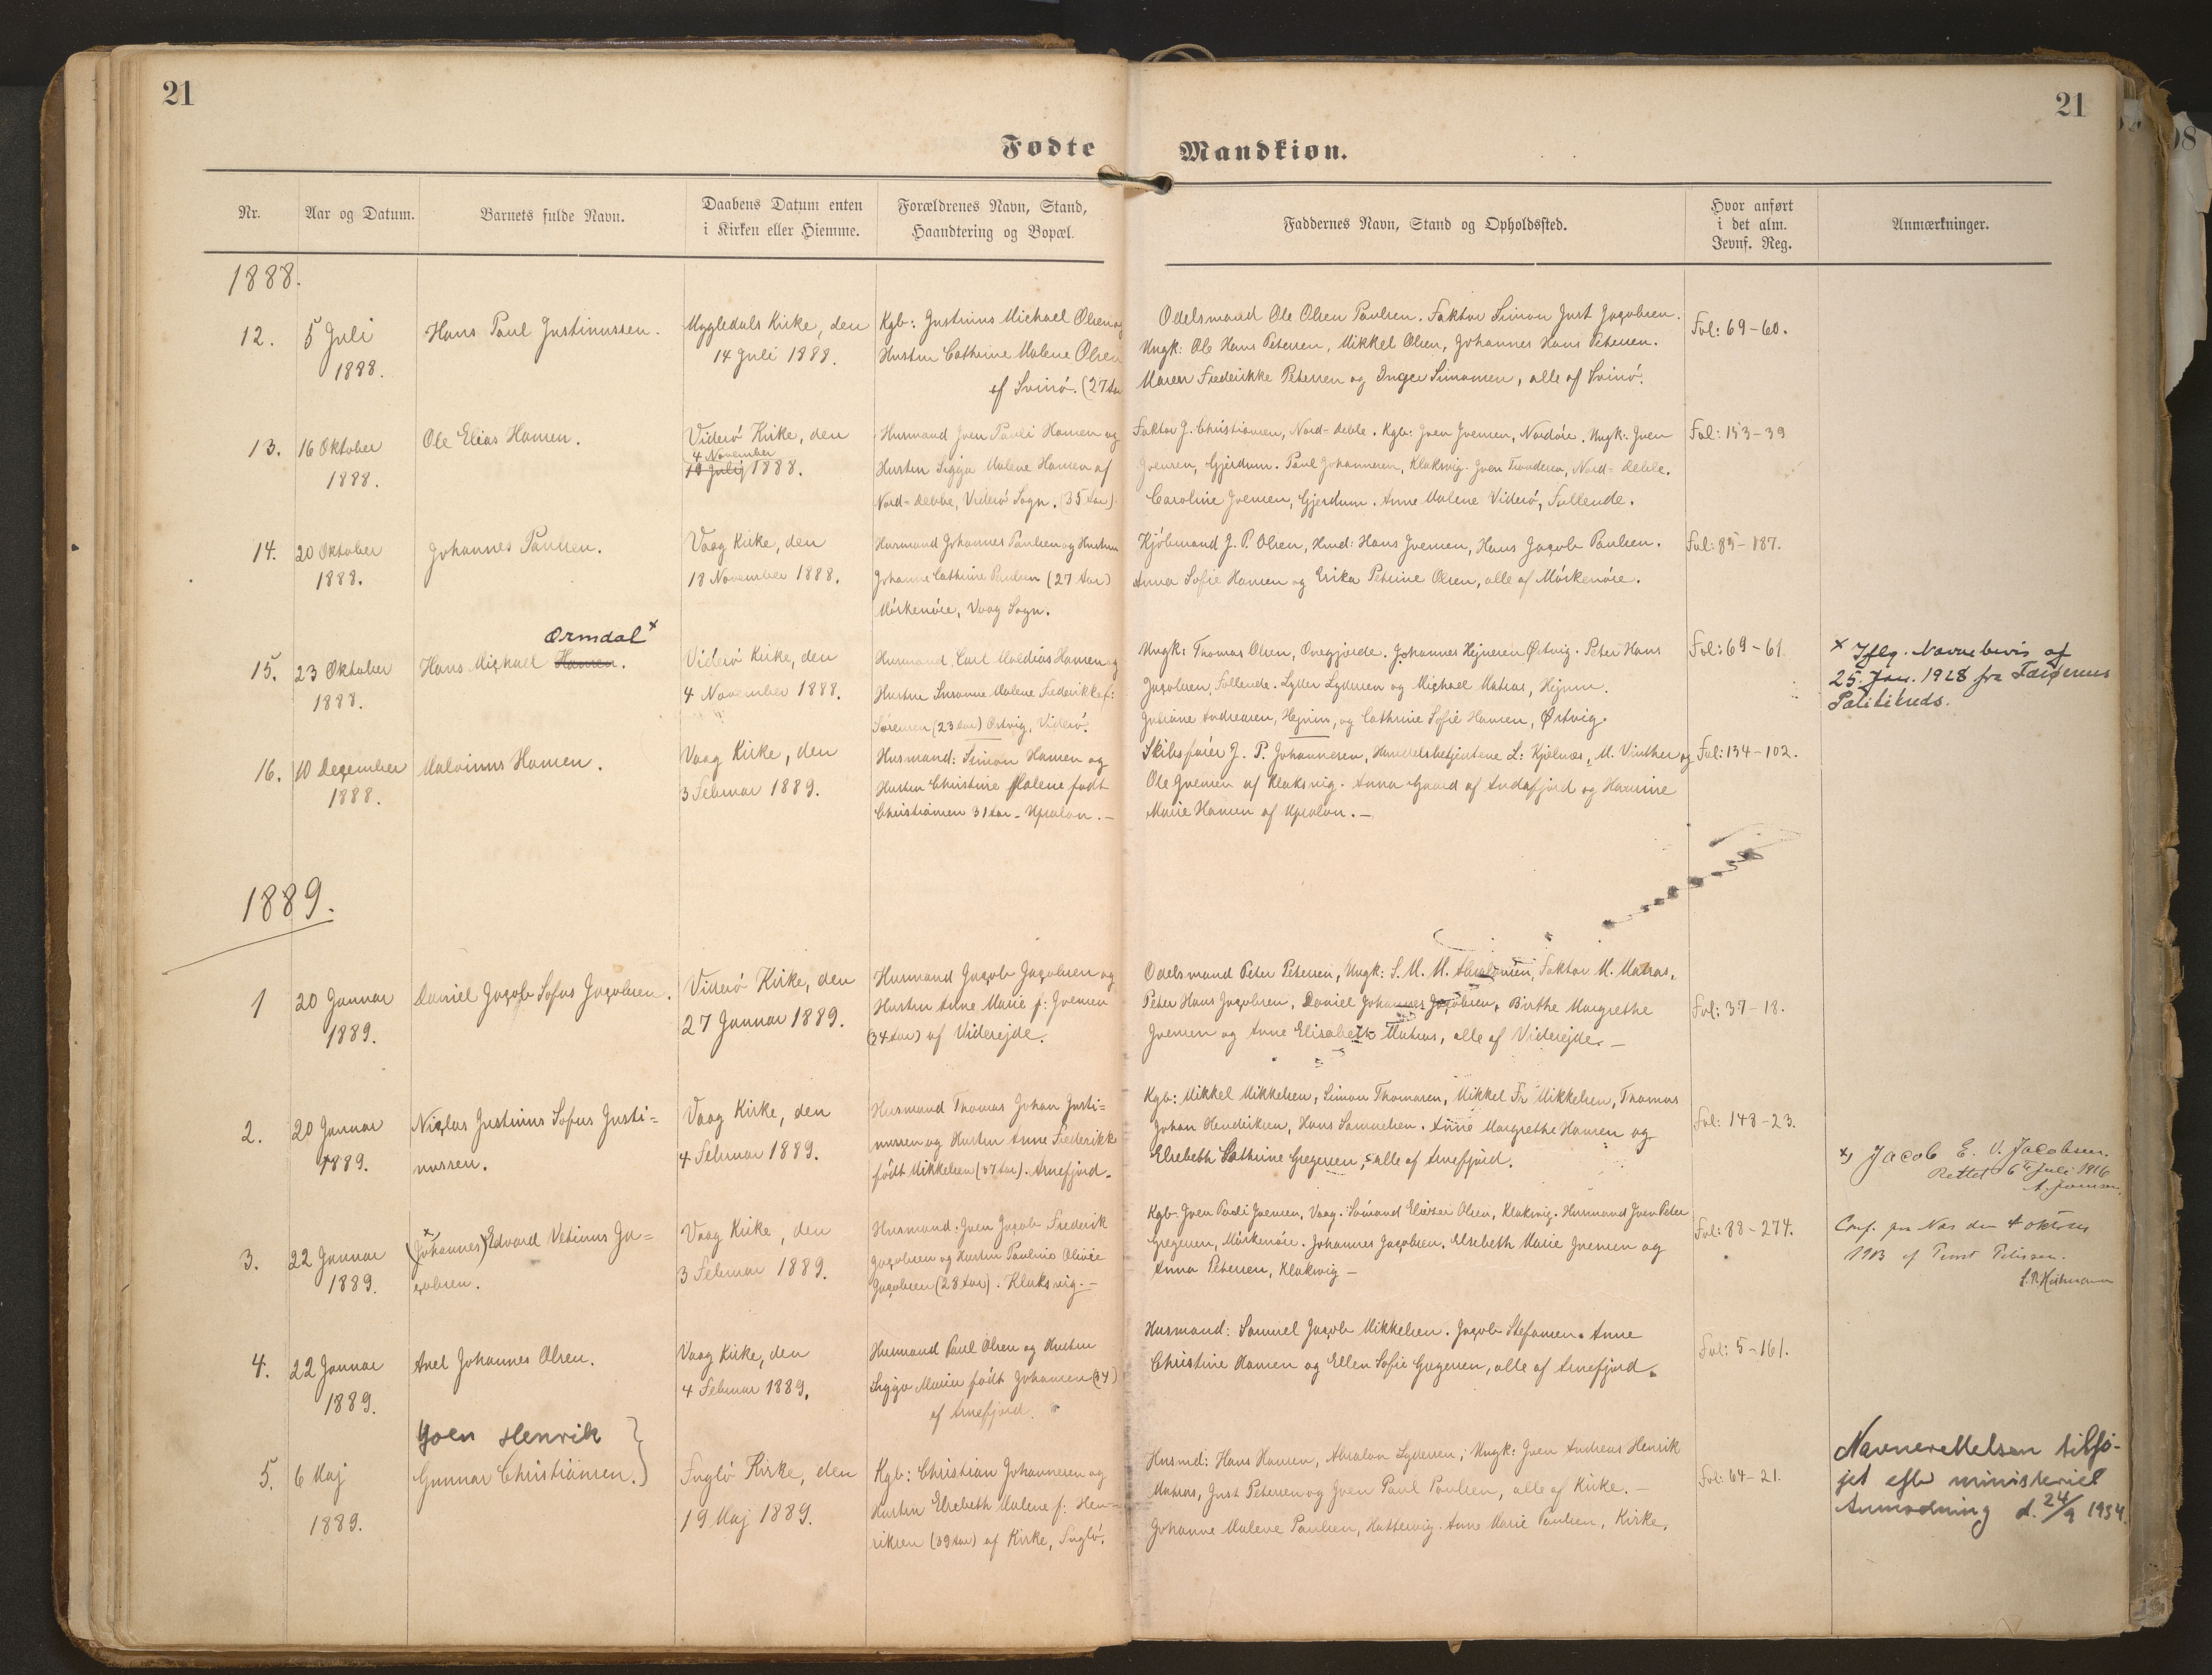 21
21
Fødte
Mandkiøn.
Nr.
Aar og Datum.
Barnets fulde Navn.
Daabens Datum enten
i Kirken eller Hiemme.
Forældrenes Navn, Stand,
Haandtering og Bopæl.
Faddernes Navn, Stand og Opholdssted.
Hvor anført
i det alm.
Jevnf. Reg.
Anmærkninger.
1888.
12.
5 Juli
1888.
Hans Paul Justinussen.
Mygledals Kirke, den
14 Juli 1888.
Kgb: Justinus Michael Olsen og
Hustru Cathrine Malene Olsen
af Svinö. (27 Aar
Odelsmand Ole Olsen Paulsen. Faktor Simon Just Jacobsen.
Ungk: Ole Hans Petersen, Mikkel Olsen, Johannes Hans Petersen.
Maren Frederikke Petersen og Inger Simonsen, alle af Svinö.
Fol: 69-60.
13.
16 Oktober
1888.
Ole Elias Hansen.
Viderö Kirke, den
4 November
19 Julij 1888.
Husmand Joen Pauli Hansen og
Hustru Sigga Malene Hansen af
Nord-debbe, Viderö Sogn. (35 Aar).
Faktor J. Christiansen, Nord-debble. Kgb: Joen Joensen, Nordöie. Ungk: Joen
Joensen, Gjerdum. Paul Johannesen, Klaksvig. Joen Trondesen, Nord-debble.
Caroline Joensen, Gjerdum. Anne Malene Viderö, Fullende.
Fol: 153-39
14.
20 Oktober
1888.
Johannes Paulsen.
Vaag Kirke, den
18 November 1888.
Husmand Johannes Paulsen og Hustru
Johanne Cathrine Paulsen (27 Aar)
Mörkenöre, Vaag Sogn.
Kjöbmand J. P. Olsen, Hmd: Hans Joensen, Hans Jacob Paulsen.
Anna Sofie Hansen og Erika Petrine Olsen, alle af Mörkenöre.
Fol: 85-187.
15.
23 Oktober
1888.
Ormdal x
Hans Michael Hansen.
Viderö Kirke, den
4 November 1888.
Husmand Carl Mathias Hansen og
Hustru Susanne Malene Frederikke f:
Sörensen (23 Aar) Östvig, Viderö.
Ungk: Thomas Olsen, Onegjærde. Johannes Hejnesen Östvig. Peter Hans
Jacobsen, Fullende. Lyder Lydersen og Michael Matras, Hejnum.
Juliane Andreasen, Hejnum, og Cathrine Sofie Hansen, Östvig.
Fol: 69-61
x Iflg. Navnebevis af
25. Jan. 1928 fra Færøernes
Politikreds.
16.
10 December
1888.
Malvinus Hansen.
Vaag Kirke, den
3 Februar 1889.
Husmand: Simon Hansen og
Hustru Christine Malene født
Christiansen 31 Aar - Upsalon. -
Skibsfører J. P. Johannesen, Handelsbetjentene L: Kjelnæs, M. Vinther og
Ole Joensen af Klaksvig. Anna Gaard af Andafjord og Hansine
Marie Hansen af Upsalon. -
Fol: 134-102.
1889.
1
20 Januar
1889.
Daniel Jacob Sofus Jacobsen.
Viderö Kirke, den
27 Januar 1889.
Husmand Jacob Jacobsen og
Hustru Anne Marie f: Joensen
(34 Aar) af Viderejde.
Odelsmand Peter Petersen, Ungk: S. M. M. Absalonsen, Faktor M. Matras,
Peter Hans Jacobsen, Daniel Johannes Jacobsen, Birthe Margrethe
Joensen og Anne Elisabeth Matras, alle af Viderejde. -
Fol: 37-18.
2.
20 Januar
1889.
Niclas Justinus Sofus Justi=
nussen.
Vaag Kirke, den
4 Februar 1889.
Husmand Thomas Johan Justi=
nussen og Hustru Anne Frederikke
født Mikkelsen (37 Aar). Arnefjord.
Kgb: Mikkel Mikkelsen, Simon Thomasen, Mikkel Fr Mikkelsen, Thomas
Johan Henriksen, Hans Samuelsen. Anne Margrethe Hansen og
Elsebeth Cathrine Gregersen, alle af Arnefjord.
Fol: 148-23.
3.
22 Januar
1889.
x
(Johannes) Edvard Vetinus Ja=
cobsen.
Vaag Kirke, den
3 Februar 1889.
Husmand: Joen Jacob Frederik
Jacobsen og Hustru Pauline Olivie
Jacobsen (28 Aar). Klaksvig. -
Kgb. Joen Pauli Joensen, Vaag. Sömand Elieser Olsen, Klaksvig. Husmand Joen Peter
Gregersen, Mörkenöre. Johannes Jacobsen. Elsebeth Marie Joensen og
Anna Petersen, Klaksvig -
Fol: 88-274.
x) Jacob E. V. Jacobsen.
Rettet 6 Juli 1916
Conf. paa Næs den 4 Oktober
1903 af Provst Petersen.
4.
22 Januar
1889.
Axel Johannes Olsen.
Vaag Kirke, den
4 Februar 1889.
Husmand Paul Olsen og Hustru
Sigga Maria født Johansen (34)
af Arnefjord.
Husmand: Samuel Jacob Mikkelsen. Jacob Stefansen. Anne
Christine Hansen og Ellen Sofie Gregersen, alle af Arnefjord.
Fol: 5-161.
5.
6 Maj
1889.
Joen Henrik
Gunnar Christiansen.
Fuglö Kirke, den
19 Maj 1889.
Kgb: Christian Johannesen og
Hustru Elsebeth Malene f: Hen-
riksen (39 Aar) af Kirke, Fuglö.
Husmd: Hans Hansen, Absalon Lydersen, Ungk: Joen Andreas Henrik
Matras, Just Petersen og Joen Paul Poulsen, alle af Kirke. -
Johanne Malene Paulsen, Hattervig. Anne Marie Paulsen, Kirke.
Fol: 64-21.
Navnerettelsen tilfø-
jet efter ministeriel
Anmodning d. 24/9 1934.